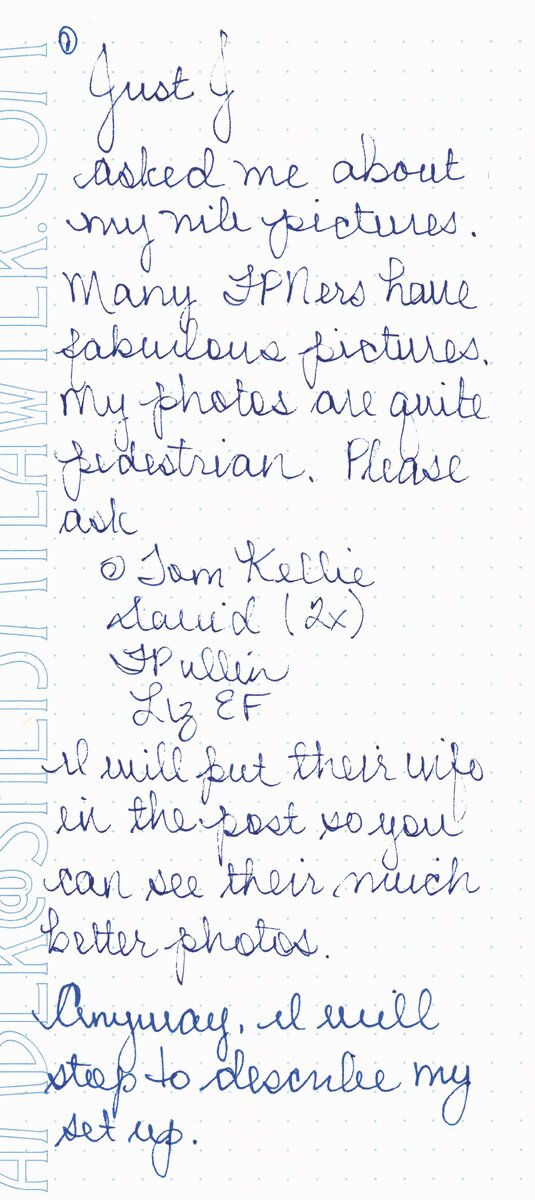 ①
Just J
asked me about
my nib pictures.
Many FPNers have
fabulous pictures.
My photos are quite
pedestrian. Please
ask
Tom Kellie
David (2x)
FPullin
Liz EF
I will put their info
in the post so you
can see their much
better photos.
Anyway, I will
stop to describe my
set up.